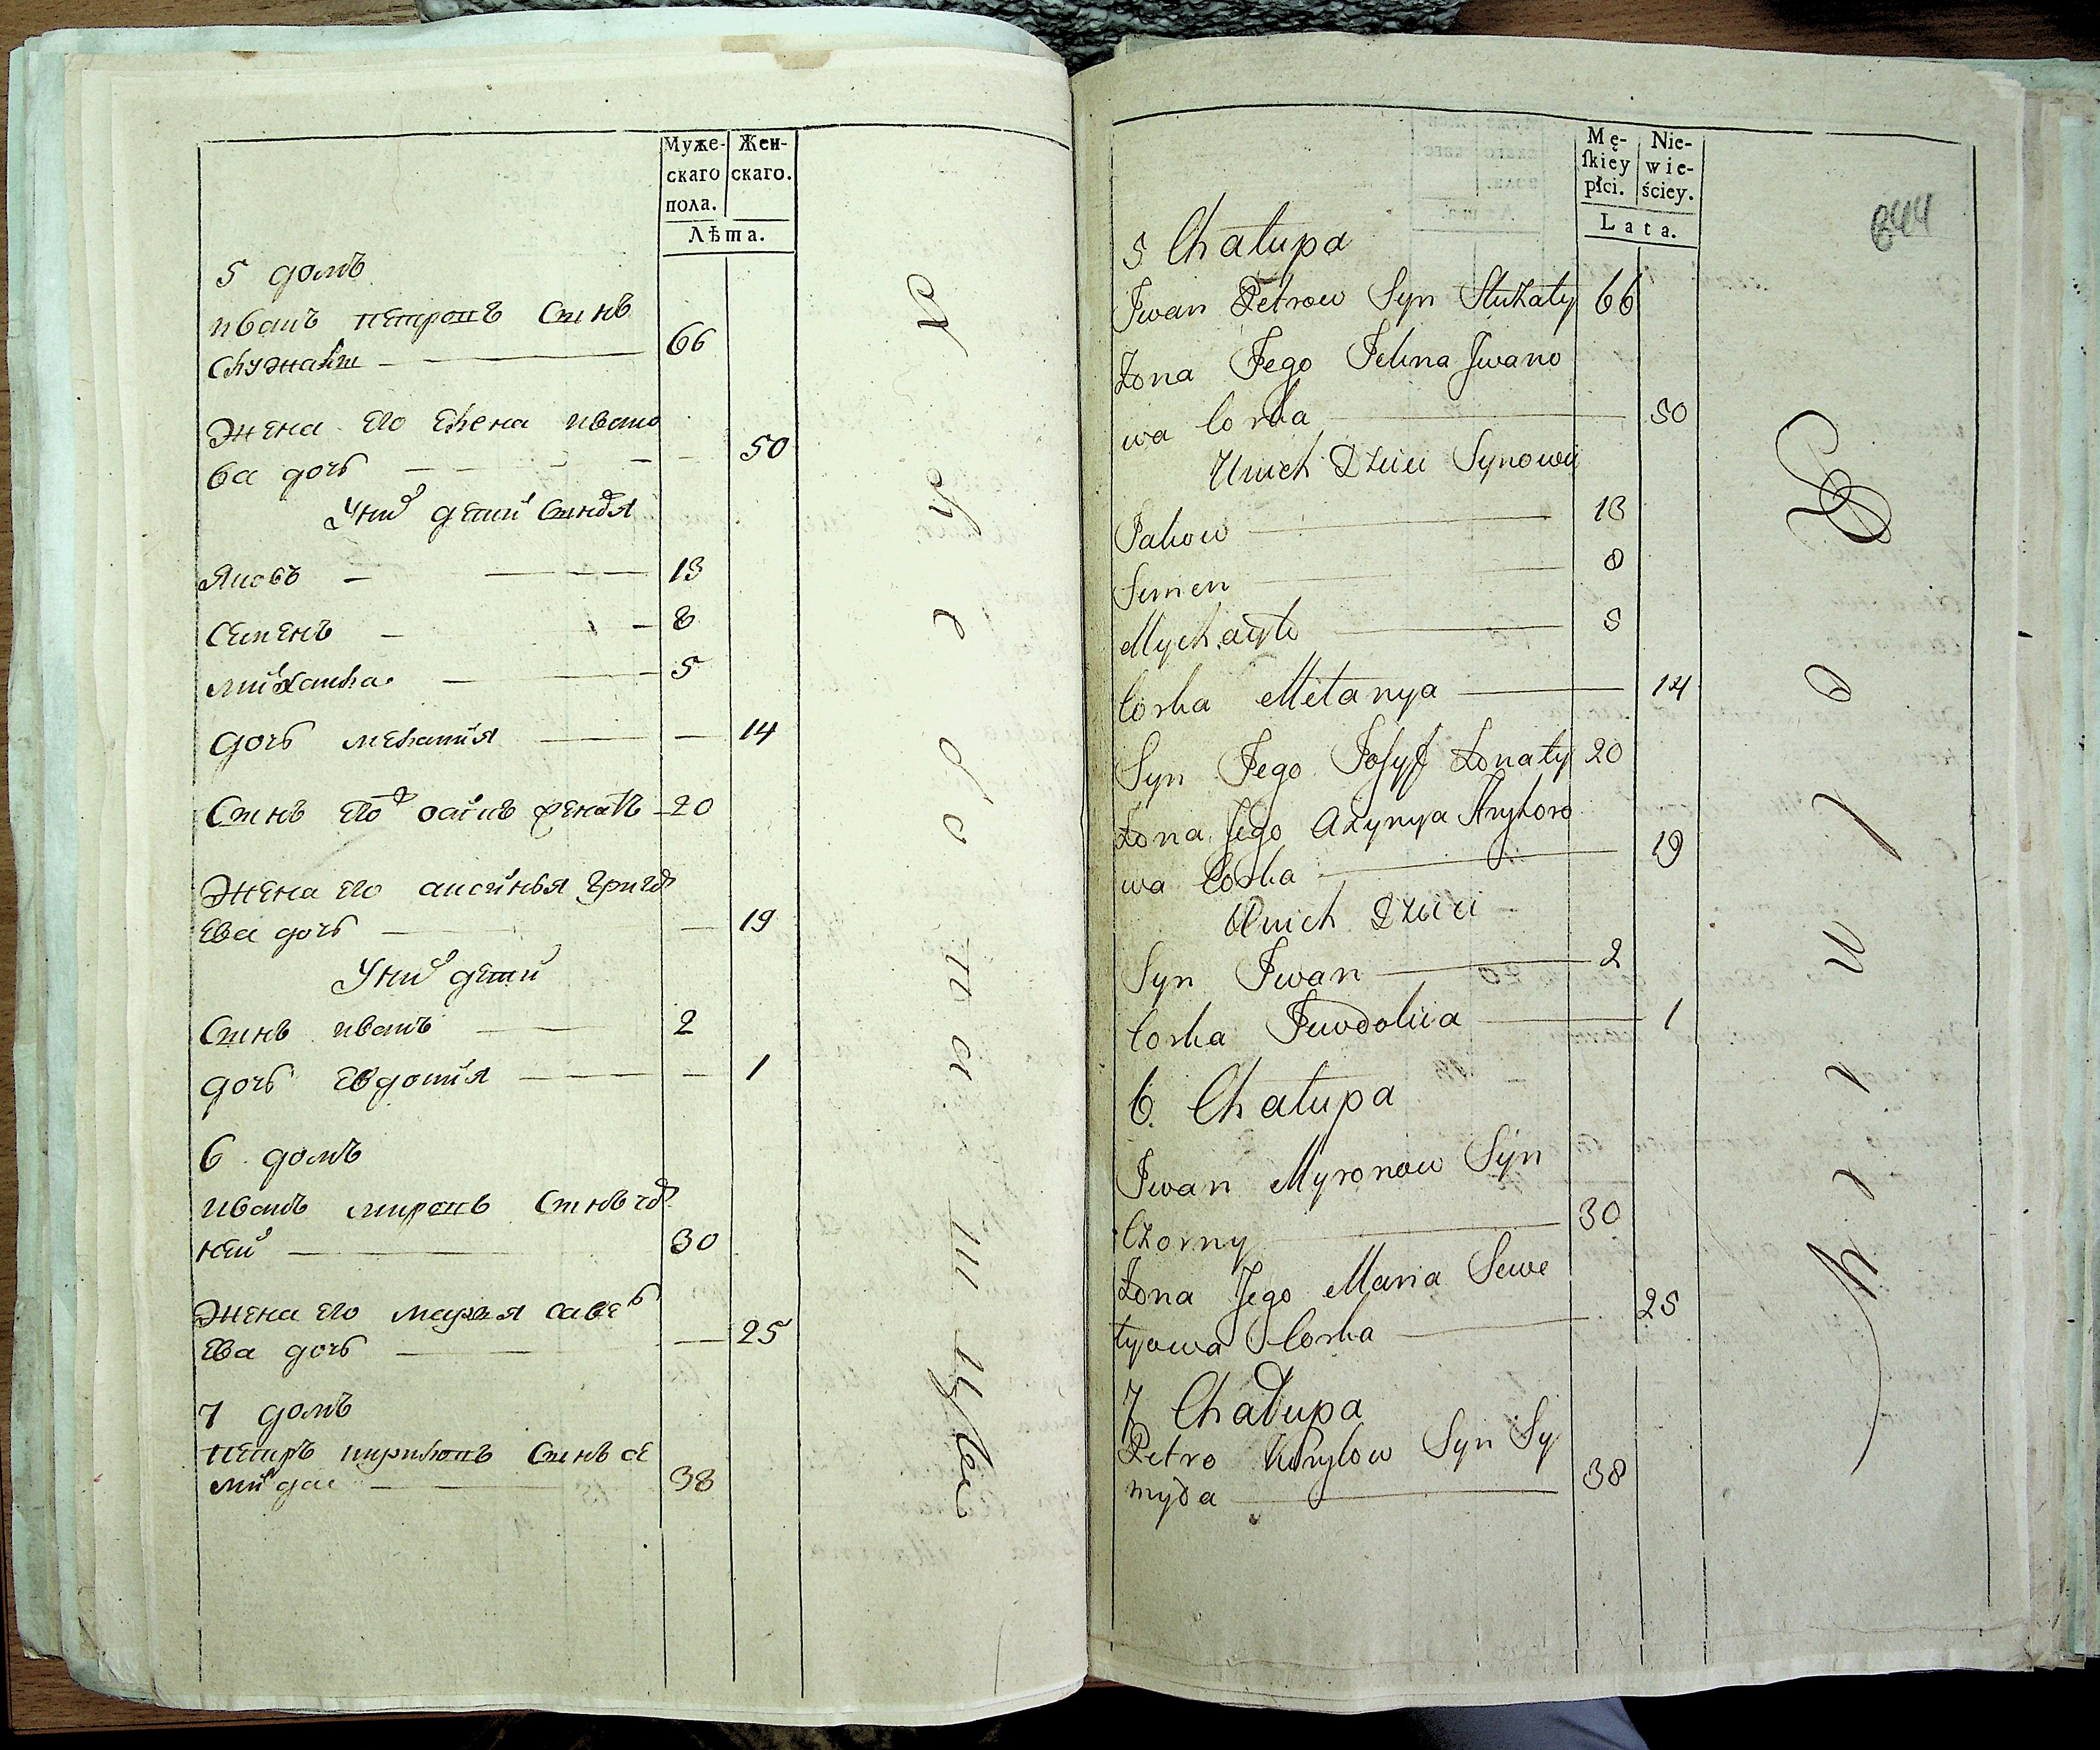 Муже-
скаго
пола.
Жен-
скаго.
Лѣта.
5 домъ
иванъ петровъ сынъ
служалы 66
жена его елена ивано
ва дочь 50
У них детей сыновя
Яковъ 13
семенъ 8
михаила 5
дочь мелания 14
сынъ его осипъ женатъ 20
жена его аксинья григор
ева дочь 19
У них детей
сынъ иванъ 2
дочь евдокия 1
6 домъ
иванъ миронъ сынъ чор
ней 30
жена его марья савель
ева дочь 25
7 домъ
петръ кириловъ сынъ се
мида 38
Mę-
skiey
płci.
Nie-
wie-
ściey.
Lata.
844
5 Chałupa
Jwan Petrow Syn Służały 66
Żona Jego Jelina Jwano
wa Corka 50
Unich Dzieci Synowie
Jakow 13
Semen 8
Mychayło 5
Corka Mełanya 14
Syn Jego Josyf Żonaty 20
Żona Jego Axynya Hryhoro
wa Corka 19
Unich Dzieci
Syn Jwan 2
Corka Jewdokia 1
6. Chałupa
Jwan Myronow Syn
Czorny 30
Żona Jego Maria Sawe
tyowa Corka 25
7 Chałupa
Petro Kirylow Syn Sy
myda 38